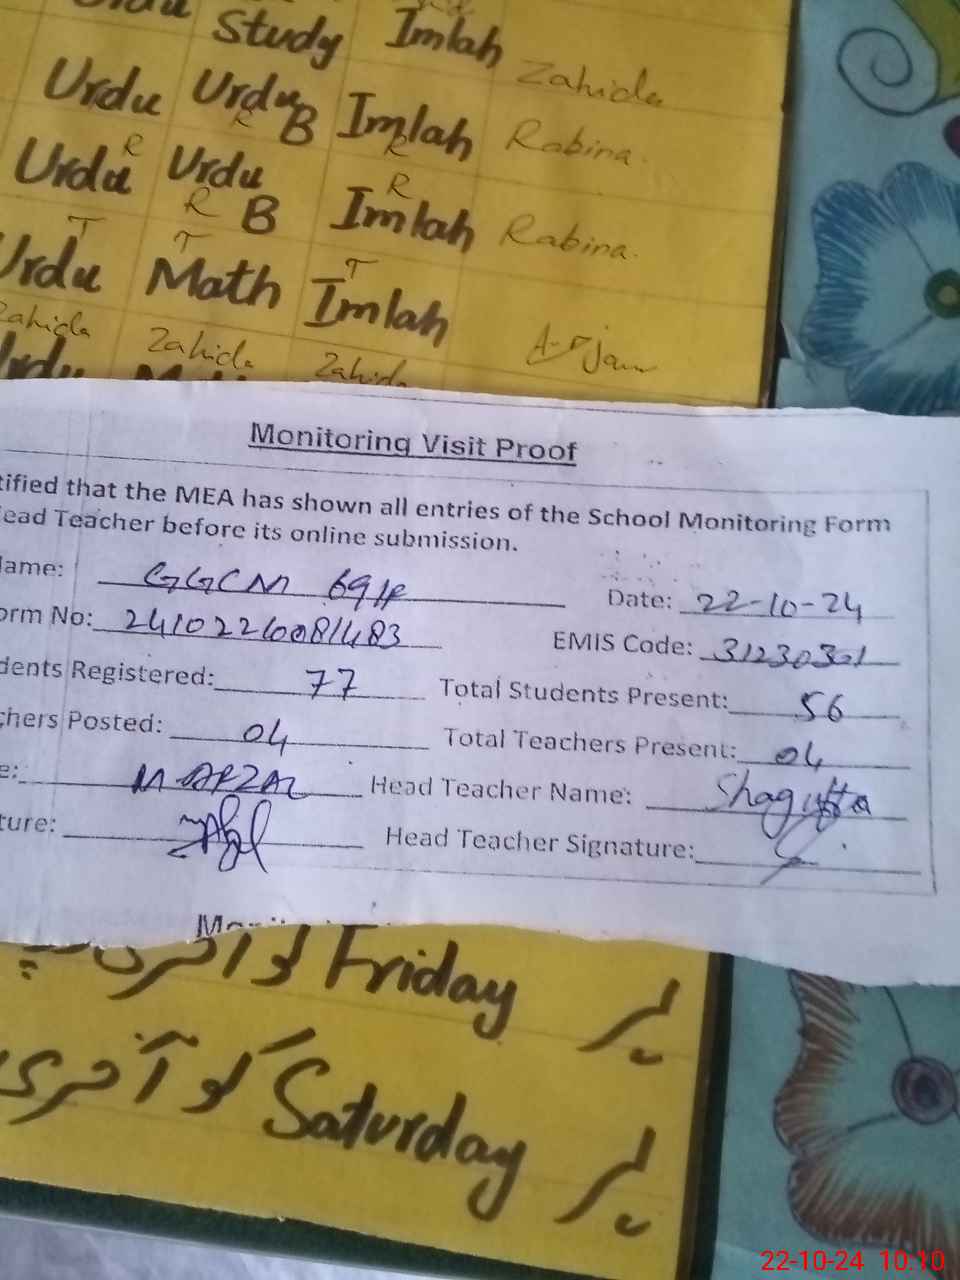 Study Imlah
Zahida
Urdu Urdu B Imlah Rabina.
R R
R R
Urdu Urdu B Imlah Rabina.
R
T T T
Urdu Math Imlah
Zahida Zahida Zahida
Monitoring Visit Proof
tified that the MEA has shown all entries of the School Monitoring Form
ead Teacher before its online submission.
ame: GGCM 69/P Date: 22-10-24
orm No: 24102260081483 EMIS Code: 31230301
dents Registered: 77 Total Students Present: 56
chers Posted: 04 Total Teachers Present: 04
e: M AFZAL Head Teacher Name: Shagufta
ture: Head Teacher Signature:
کو آخری Friday
کو آخری Saturday
22-10-24 10:10